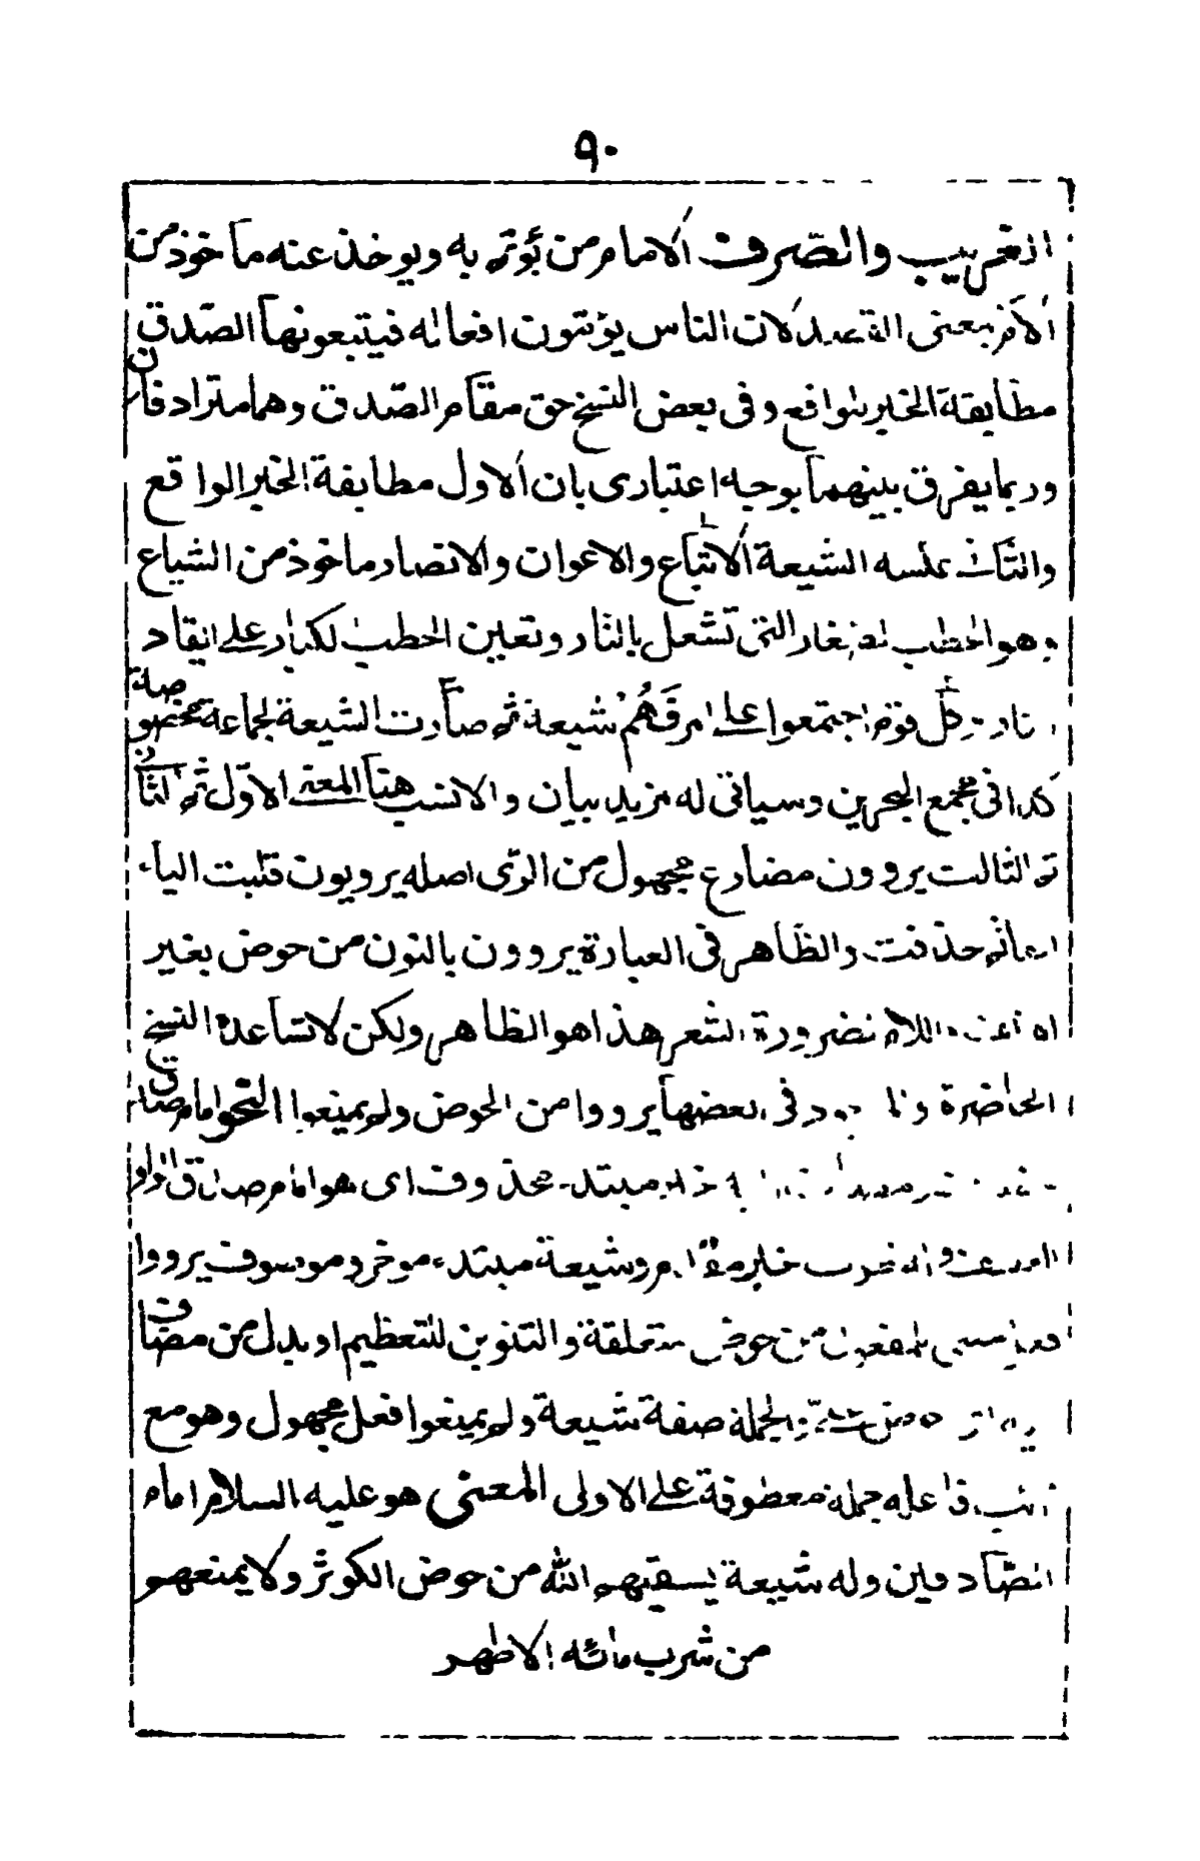 ٩٠
الغريب والصّرف ألامام من يُؤتم به ويوخذ عنه مآخوذ من
ألآم بمعنى القصد لان الناس يؤتون افعاله فيتبعونهآ الصّدق
مطابقة الخبر للواقع وفى بعض النسخ حق مقآم الصّدق وهما مترادفان
وربما يفرق بينهمآ بوجه اعتبارى بان ألاول مطابقة الخبر الواقع
والثانى عكسه الشيعة ألاتباع والاعوان والانصار ماخوذ من الشياع
وهو الحطب الصغار التى تشعل بالنار وتعين الحطب الكبار على ايقاد
النار وكل قوم اجتمعوا على امر فَهُم شيعة ثم صآرت الشيعة لجماعة مخصوصة
كذا فى مجمع البحرين وسياتى له مزيد بيان والانسب هنآ المعنى الاوّل ثم الثانى
ثم الثالث يروون مضارع مجهول من الرّى اصله يرويون قلبت اليآء
حذفت والظاهر فى العبارة يروون بالنون من حوض بغير
اللام لضرورة الشعر هذا هو الظاهر ولكن لا تساعده النسخ
الحاضرة فى بعضهآ يرووا من الحوض ولم يمنعوا النحو امام صادق
مبتدء محذوف اى هو امام صادق
خبر مقدم وشيعة مبتدء موخر وموصوف يرووا
من حوض متعلقة والتنوين للتعظيم او بدل من مضاف
والجملة صفة شيعة ولم يمنعوا فعل مجهول وهو مع
نائب فاعله جملة معطوفة على الاولى المعنى هو عليه السلام امام
الصّادقين وله شيعة يسقيهم الله من حوض الكوثر ولا يمنعهم
من شرب مائه الاطهر